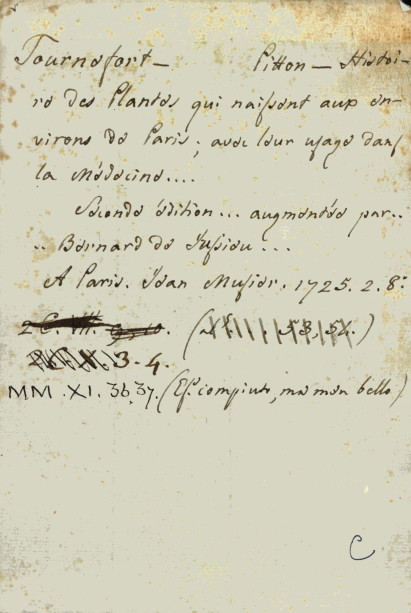 Tournefort — Pitton — Histoi-
re des Plantes qui naissent aux en-
virons de Paris; avec leur usage dans
la Médecine....
Seconde édition... augmentée par..
.. Bernard de Jussieu...
A Paris. Jean Musier. 1725. 2. 8:
2 C. VII. ( 53. 54. )
3-4.
MM. XI. 36. 37. (Es. compiuto, ma men bello)
C